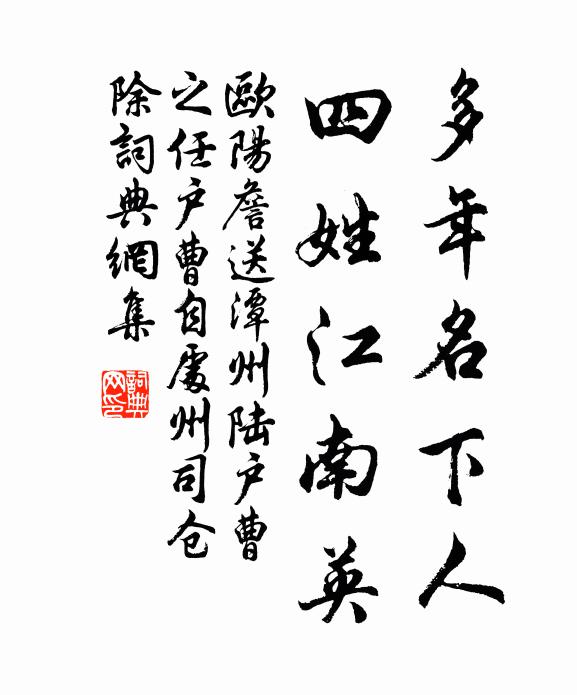 多年名下人
四姓江南英
歐陽詹送潭州陆户曹
之任户曹自處州司仓
除詞典網集
詞典网印